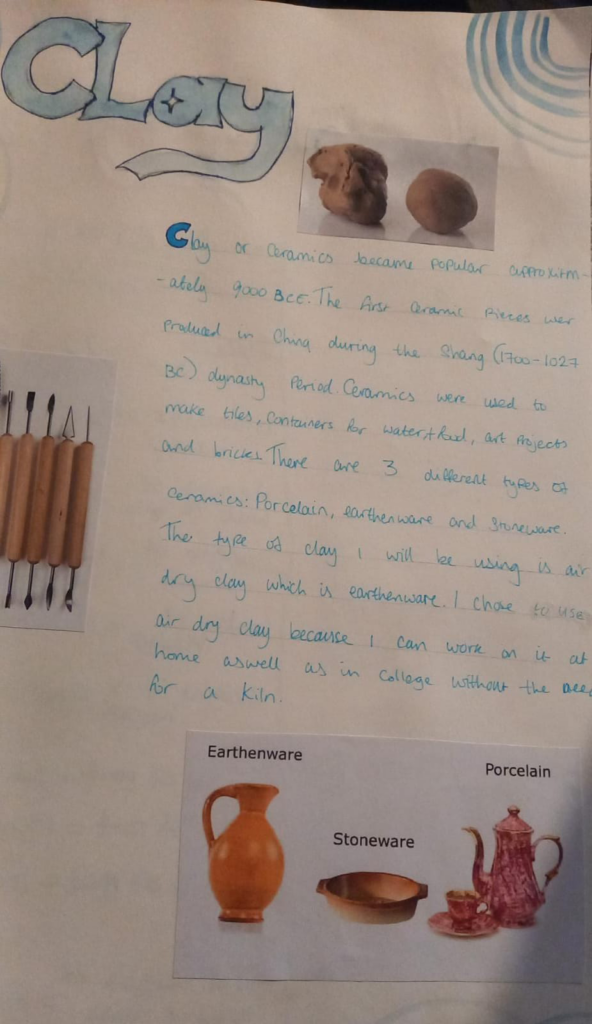 CLay
Clay or Ceramics became popular approxim-
-ately 9000 BCE. The first Ceramic Piezes wer
produced in China during the Shang (1700-1027
BC) dynasty Period. Ceramics were used to
make tiles, Containers for water,+food, art Projects
and bricks. There are 3 different types of
Ceramics: Porcelain, earthenware and Stoneware.
The type of clay I will be using is air
dry clay which is earthenware. I chose to use
air dry clay because I can work on it at
home aswell as in College without the need
for a Kiln.
Earthenware
Porcelain
Stoneware